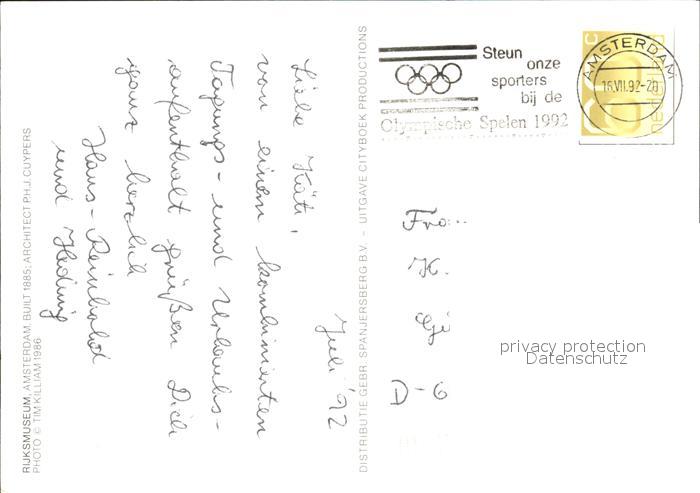 Juli '92
Liebe Käti,
von einem kombinierten
Tagungs- und Urlaubs-
aufenthalt grüßen Dich
ganz herzlich
Hans-Reinhold
und Hedwig
RIJKSMUSEUM, AMSTERDAM, BUILT 1885; ARCHITECT P.H.J. CUYPERS
PHOTO © TIM KILLIAM 1986
DISTRIBUTIE GEBR. SPANJERSBERG B.V. – UITGAVE CITYBOEK PRODUCTIONS
Steun
onze
sporters
bij de
Olympische Spelen 1992
AMSTERDAM
16.VII.92-20
Frau
K.
D-6
privacy protection
Datenschutz